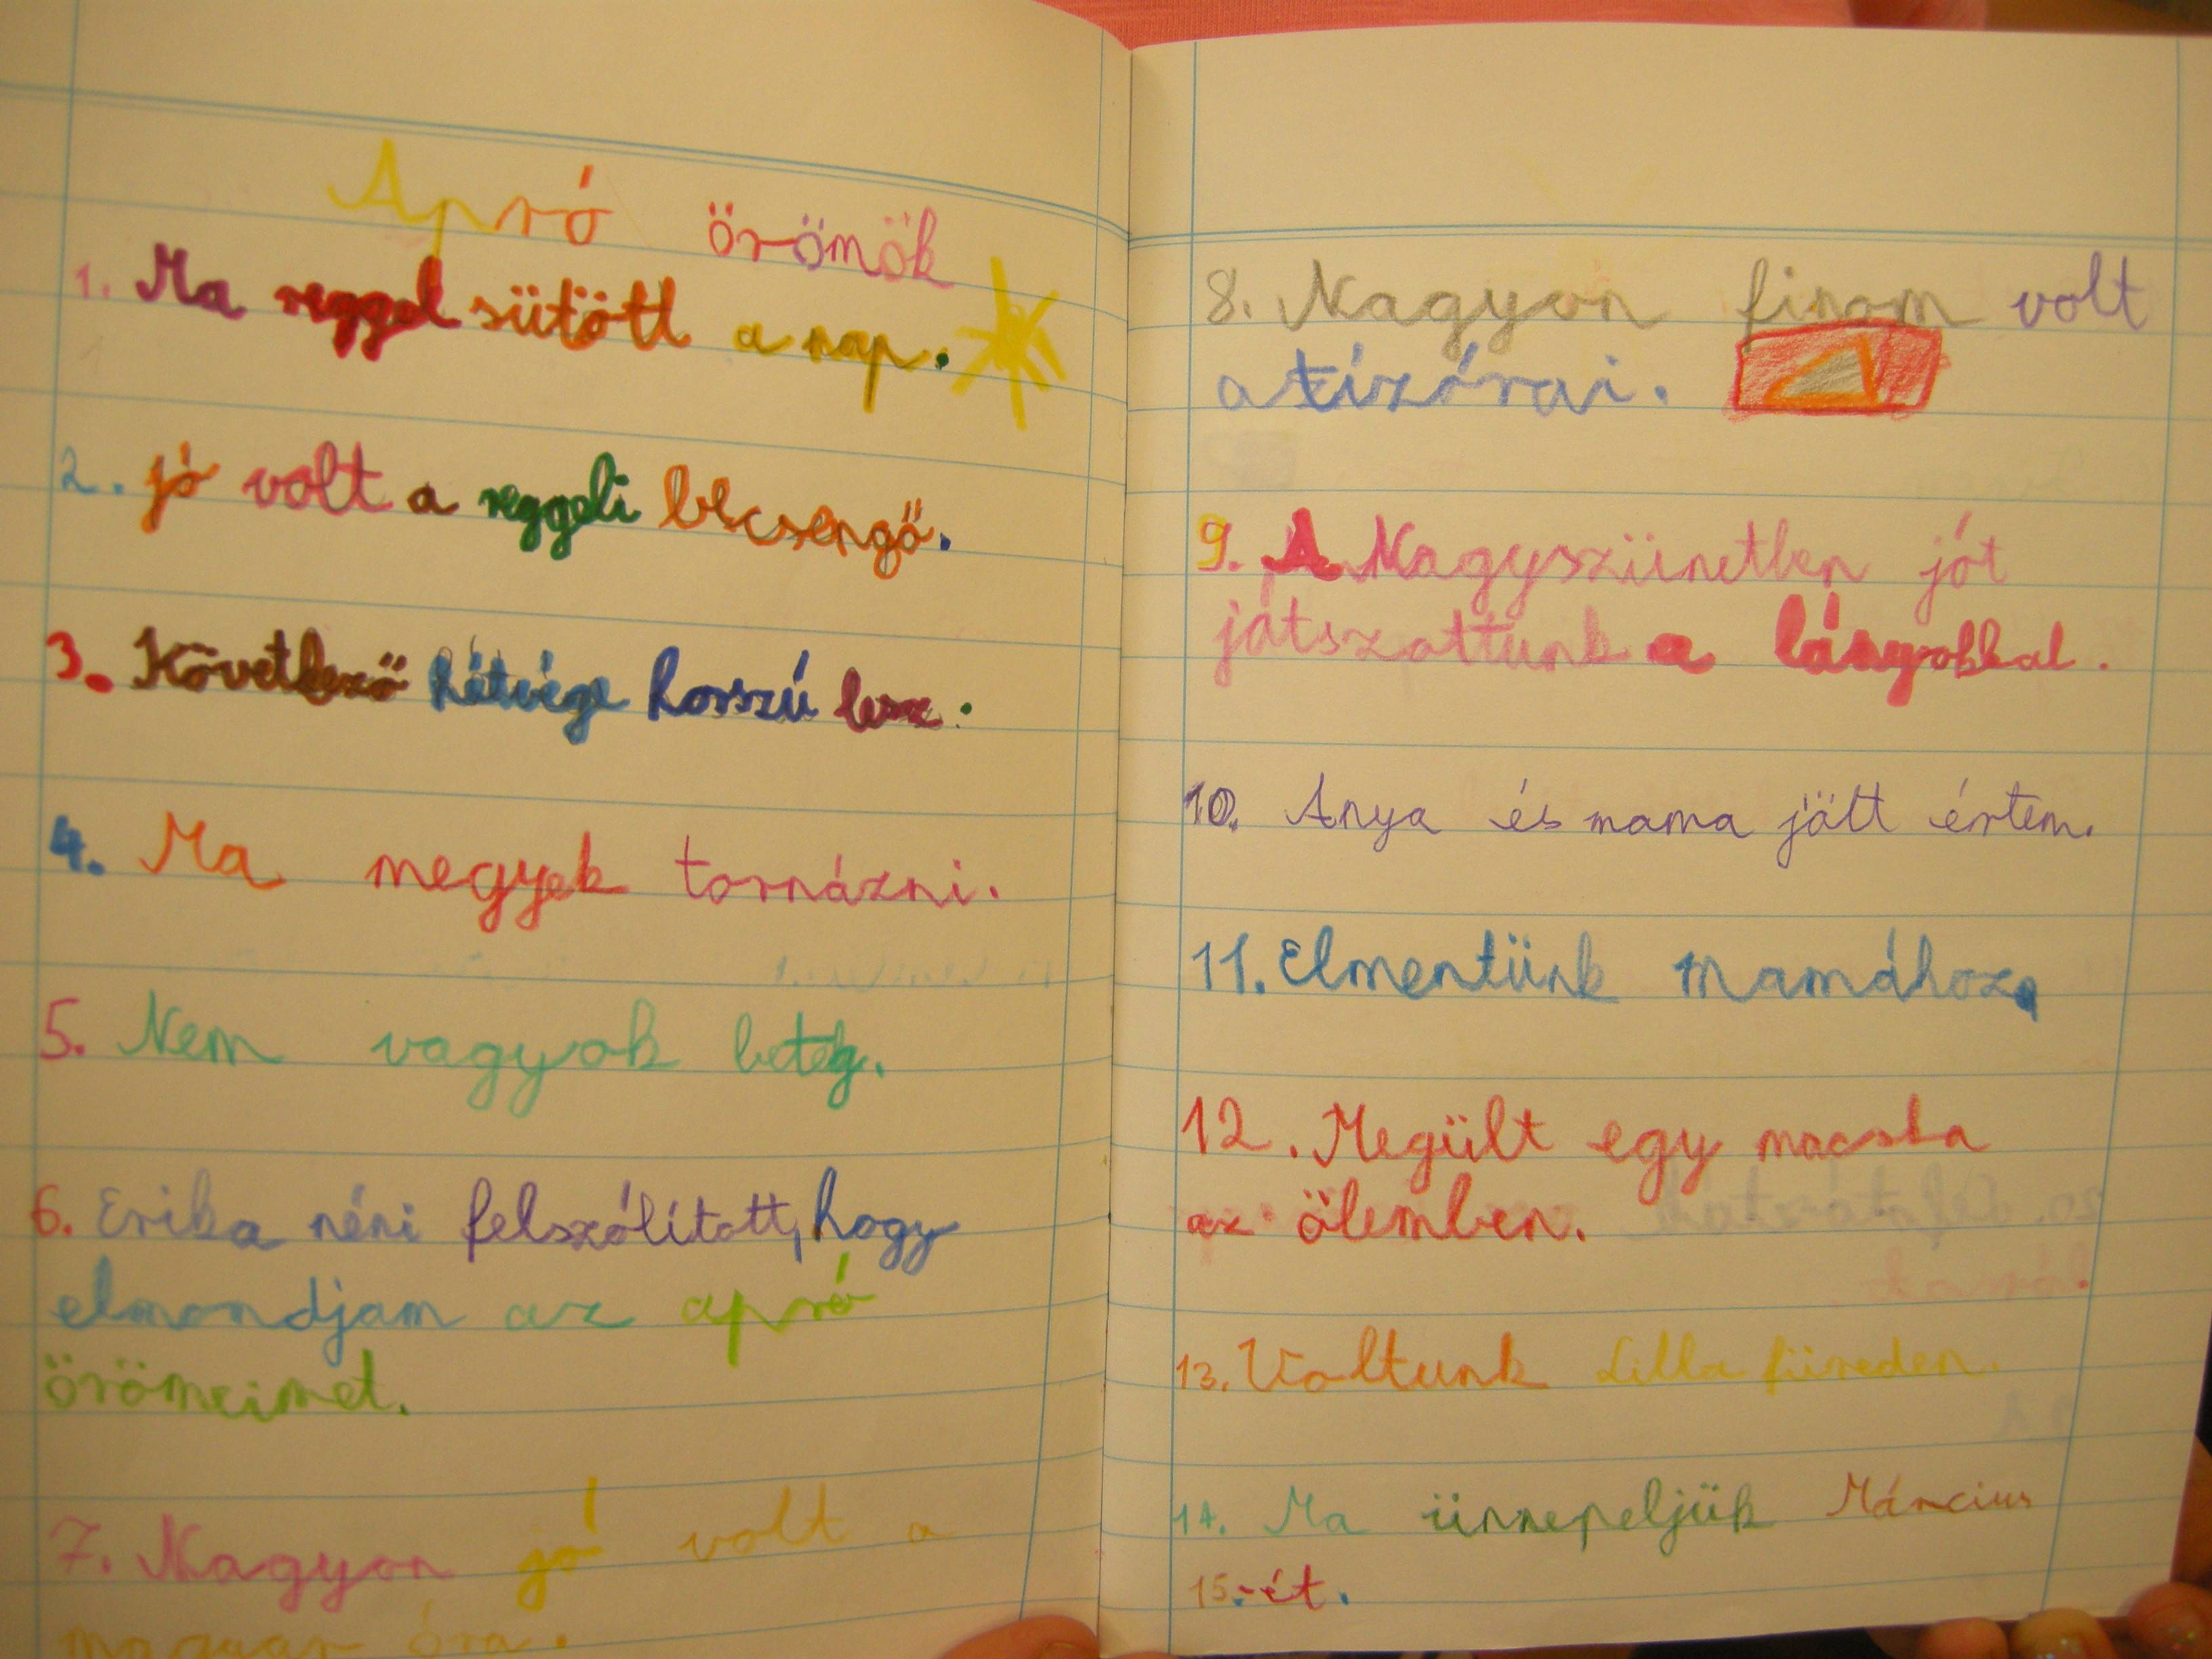 Apró örömök
1. Ma reggel sütött a nap.
2. jó volt a reggeli becsengő.
3. Következő hétvége hosszú lesz.
4. Ma megyek tornázni.
5. Nem vagyok beteg.
6. Erika néni felszólított, hogy
elmondjam az apró
örömeimet.
7. Nagyon jó volt a
magyar óra.
8. Nagyon finom volt
a tízórai.
9. A Nagyszünetben jót
játszottunk a lányokkal.
10. Anya és mama jött értem.
11. Elmentünk mamához.
12. Megült egy macska
az ölemben.
13. Voltunk Lilla füreden.
14. Ma ünnepeljük Március
15.-ét.